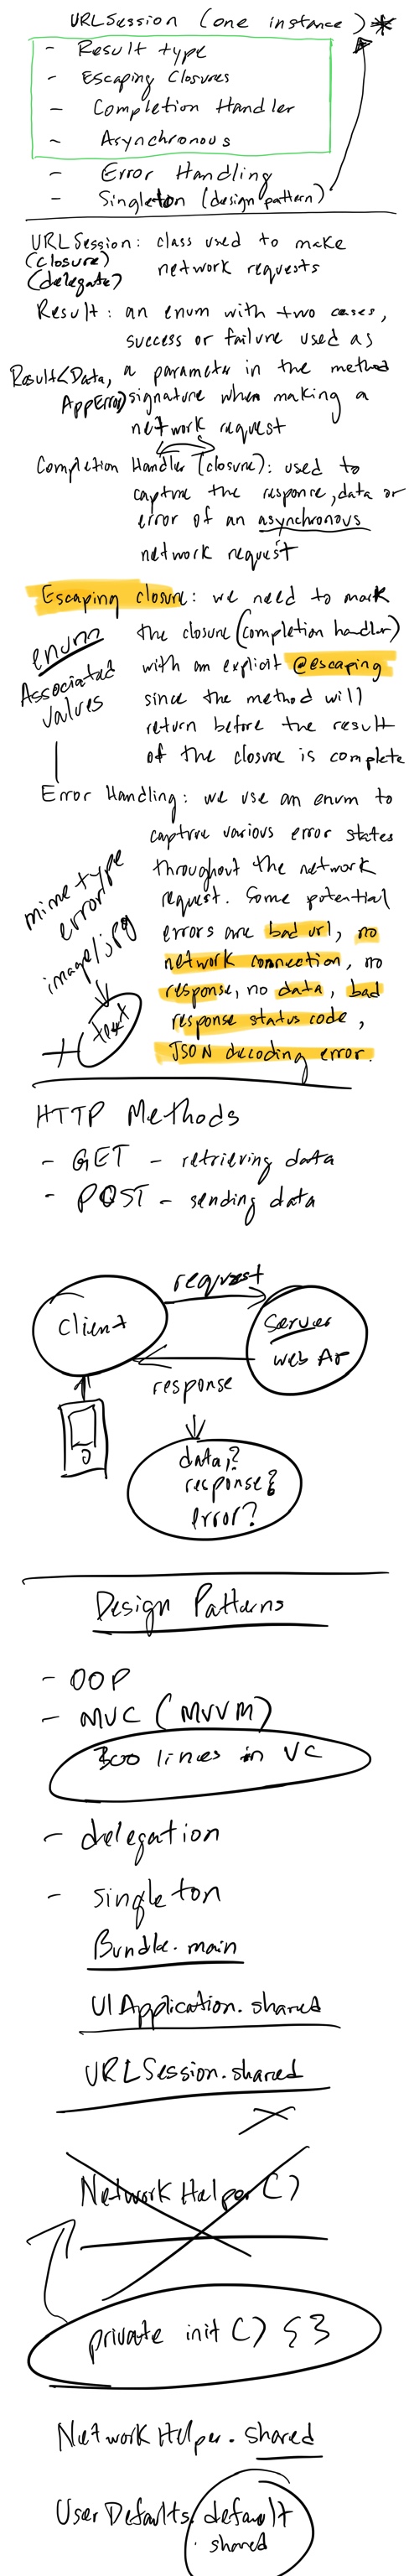 URLSession (one instance) *
- Result type
- Escaping Closures
- Completion Handler
- Asynchronous
- Error Handling
- Singleton (design pattern)
URLSession: class used to make
(closure)
(delegate)
network requests
Result: an enum with two cases,
success or failure used as
Result<Data, a parameter in the method
AppError> signature when making a
network request
Completion Handler (closure): used to
capture the response, data or
error of an asynchronous
network request
Escaping closure: we need to mark
the closure (completion handler)
with an explicit @escaping
since the method will
return before the result
of the closure is complete
enum
Associated
values
Error Handling: we use an enum to
capture various error states
throughout the network
request. Some potential
errors are bad url, no
network connection, no
response, no data, bad
response status code,
JSON decoding error.
mime type
error
image/jpg
text
HTTP Methods
- GET - retrieving data
- POST - sending data
request
Client
Server
web AP
response
data,?
response?
error?
Design Patterns
- OOP
- MVC (MVVM)
300 lines in VC
- delegation
- singleton
Bundle.main
UIApplication.shared
URLSession.shared
NetworkHelper()
private init() {}
NetworkHelper.shared
UserDefaults.default
.shared